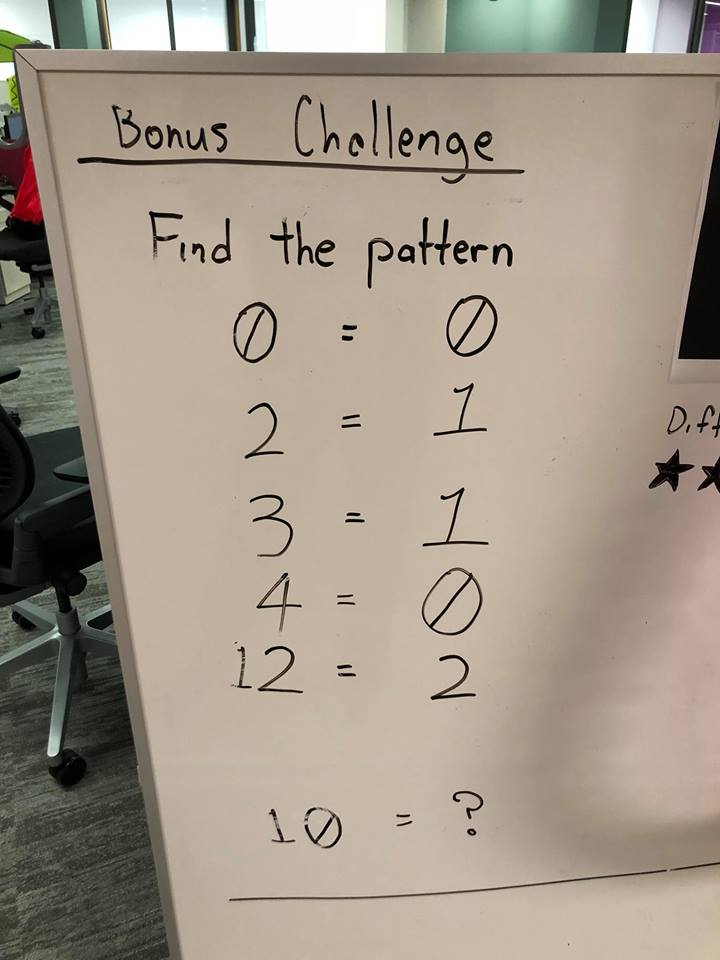 Bonus Challenge
Find the pattern
0 = 0
2 = 1
3 = 1
4 = 0
12 = 2
10 = ?